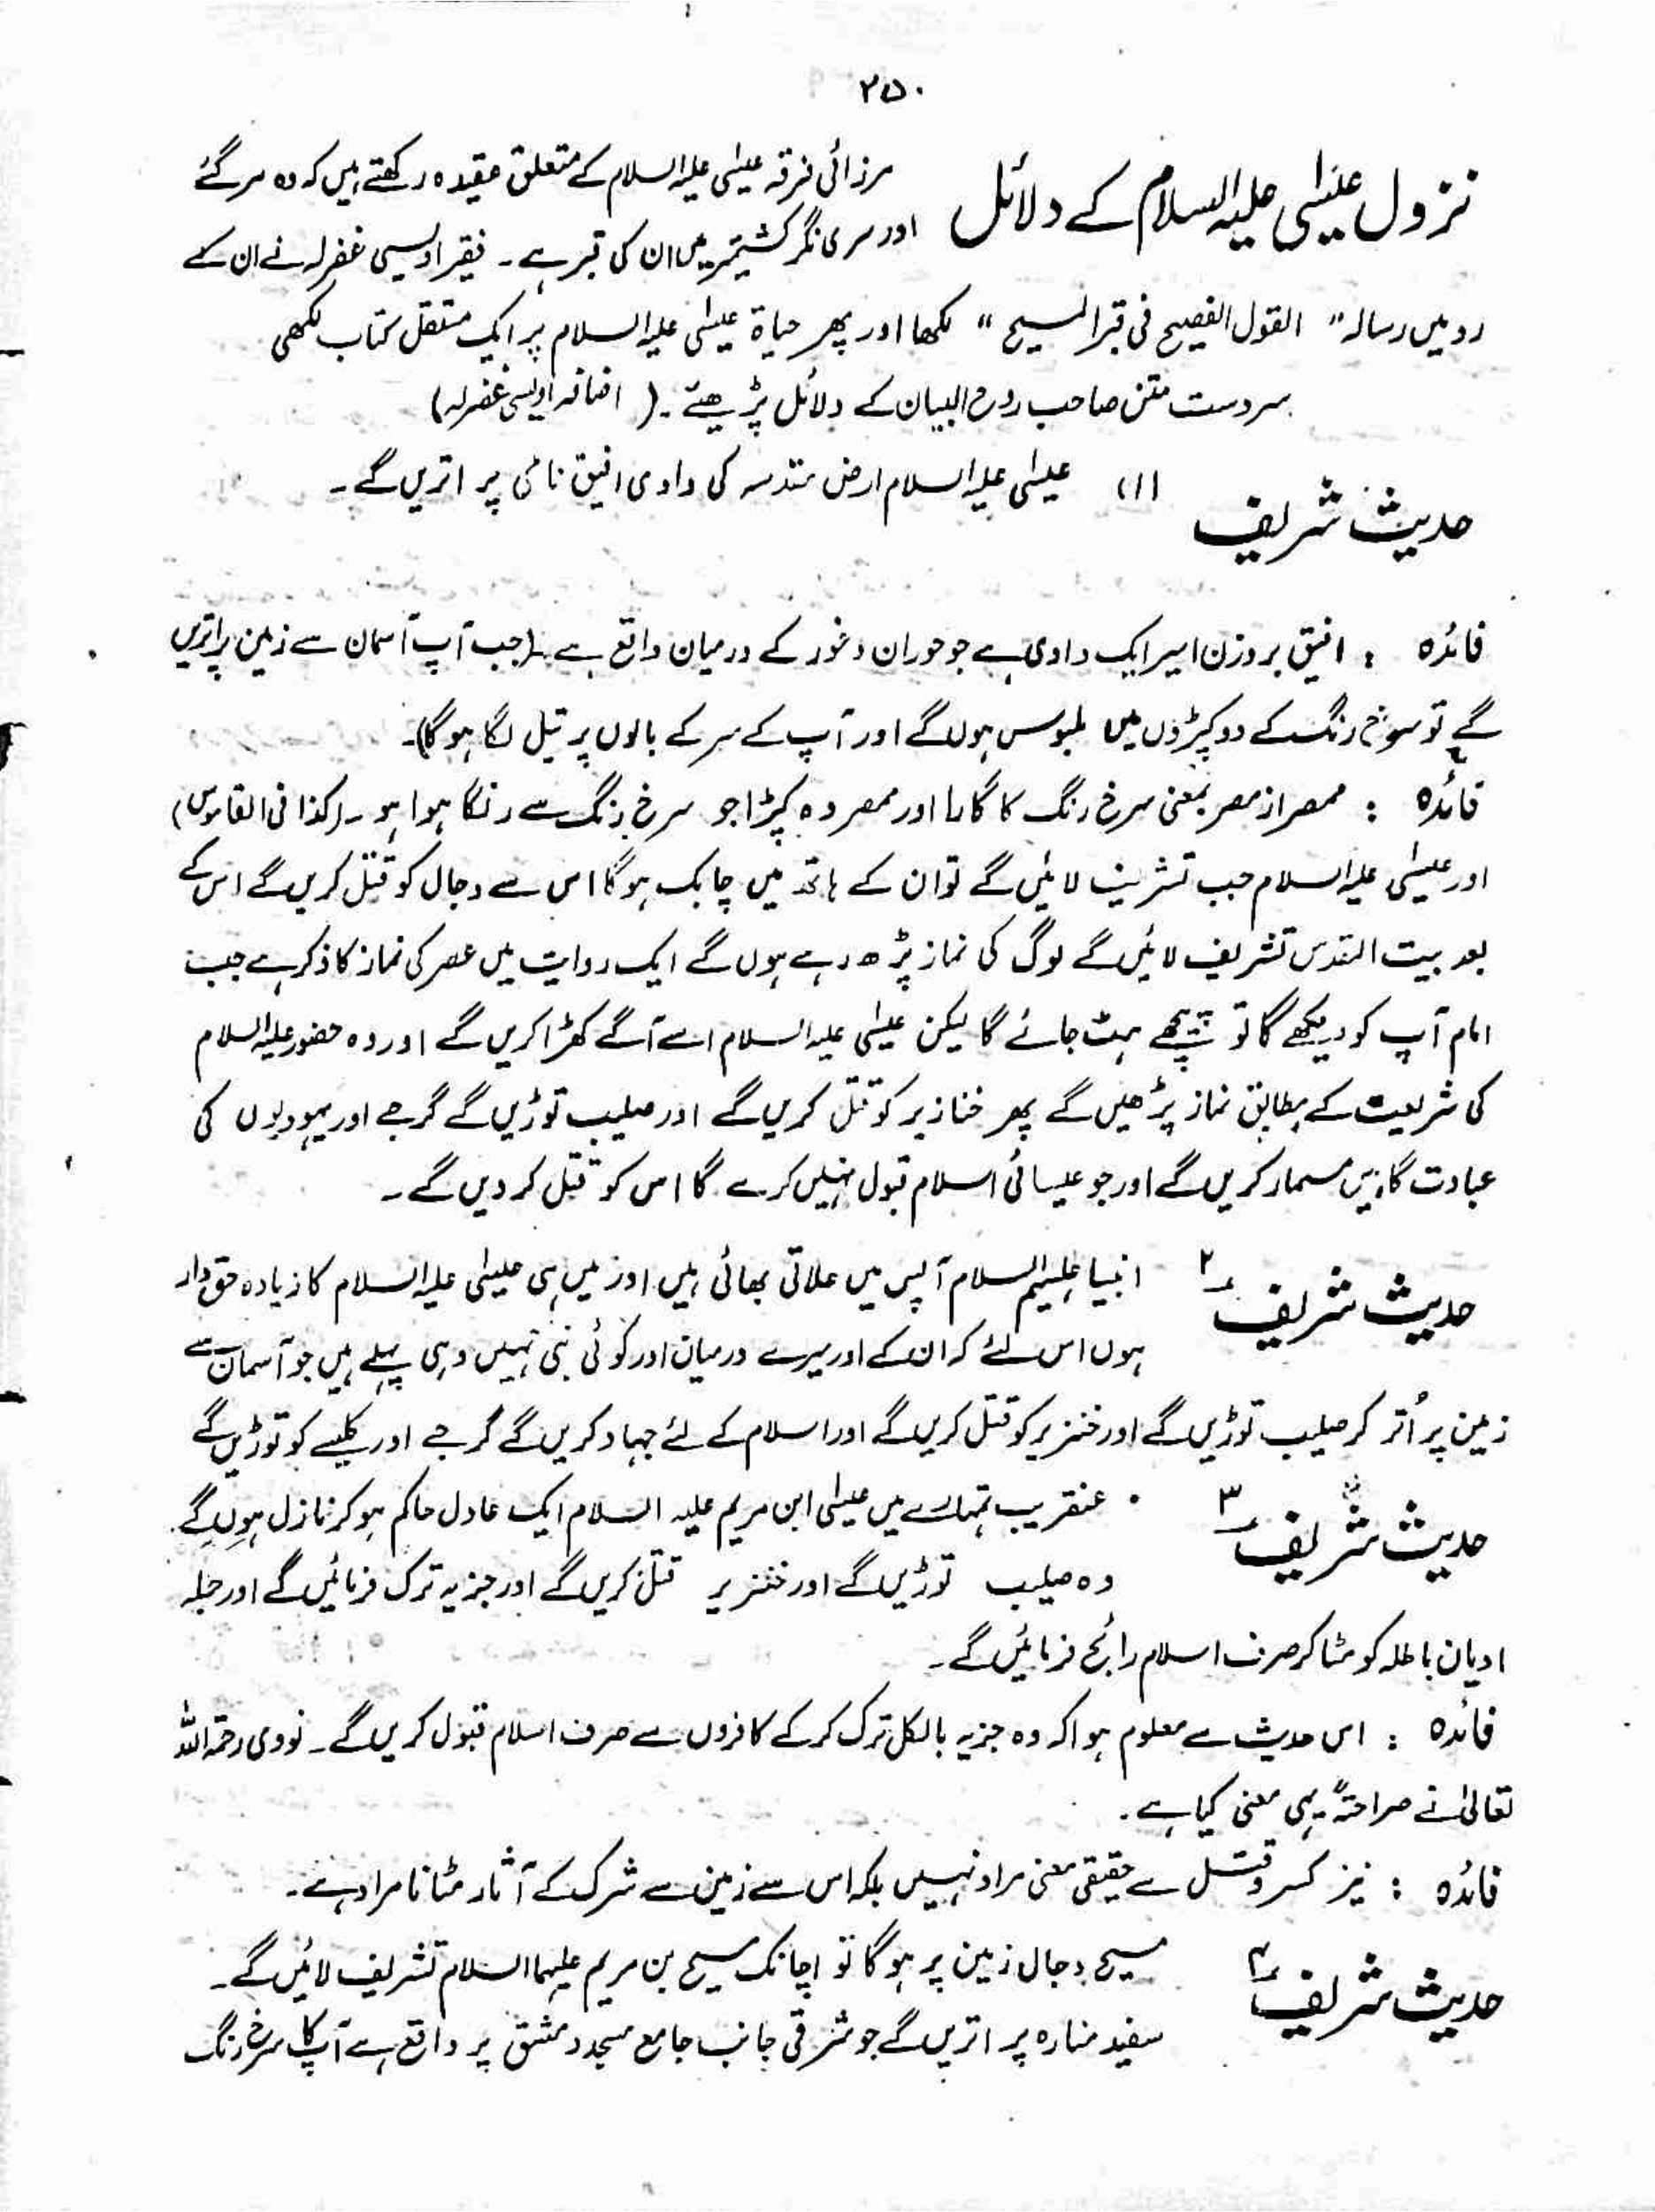 ۲۵۰
نزول عیسٰی علیہ السلام کے دلائل
مرزائی فرقہ عیسٰی علیہ السلام کے متعلق عقیدہ رکھتے ہیں کہ وہ مر گئے
اور سری نگر کشمیر میں ان کی قبر ہے ۔ فقیر اویسی غفرلہ نے ان کے
رد میں رسالہ " القول الفصیح فی قبر المسیح " لکھا اور پھر حیاۃ عیسٰی علیہ السلام پر ایک مستقل کتاب لکھی
سردست متن صاحب روح البیان کے دلائل پڑھیئے ۔ ( اضافہ اویسی غفرلہ )
حدیث شریف (۱) عیسٰی علیہ السلام ارض مقدسہ کی وادی افیق نامی پر اتریں گے ۔
فائدہ : افیق بر وزن امیر ایک وادی ہے جو حوران و غور کے درمیان واقع ہے ۔ (جب آپ آسمان سے زمین پر اتریں
گے تو سرخ رنگ کے دو کپڑوں میں ملبوس ہوں گے اور آپ کے سر کے بالوں پر تیل لگا ہو گا)۔
فائدہ : ممصر از مصر بمعنی سرخ رنگ کا گارا اور ممصر وہ کپڑا جو سرخ رنگ سے رنگا ہوا ہو ۔ (کذا فی القاموس)
اور عیسٰی علیہ السلام جب تشریف لائیں گے تو ان کے ہاتھ میں چابک ہو گا اس سے دجال کو قتل کریں گے اس کے
بعد بیت المقدس تشریف لائیں گے لوگ کی نماز پڑھ رہے ہوں گے ایک روایت میں عصر کی نماز کا ذکر ہے جب
امام آپ کو دیکھے گا تو پیچھے ہٹ جائے گا لیکن عیسٰی علیہ السلام اسے آگے کھڑا کریں گے اور وہ حضور علیہ السلام
کی شریعت کے مطابق نماز پڑھیں گے پھر خنازیر کو قتل کریں گے اور صلیب توڑیں گے گرجے اور یہودیوں کی
عبادت گاہیں مسمار کریں گے اور جو عیسائی اسلام قبول نہیں کرے گا اس کو قتل کر دیں گے ۔
حدیث شریف ۲ انبیا علیہم السلام آپس میں علاتی بھائی ہیں اور میں ہی عیسٰی علیہ السلام کا زیادہ حق دار
ہوں اس لئے کہ ان کے اور میرے درمیان اور کوئی نبی نہیں وہی پہلے ہیں جو آسمان سے
زمین پر اُتر کر صلیب توڑیں گے اور خنزیر کو قتل کریں گے اور اسلام کے لئے جہاد کریں گے گرجے اور کلیسے کو توڑیں گے
حدیث شریف ۳ عنقریب تمہارے میں عیسٰی ابن مریم علیہ السلام ایک عادل حاکم ہو کر نازل ہوں گے
وہ صلیب توڑیں گے اور خنزیر قتل کریں گے اور جزیہ ترک فرمائیں گے اور جملہ
ادیان باطلہ کو مٹا کر صرف اسلام رائج فرمائیں گے ۔
فائدہ : اس حدیث سے معلوم ہوا کہ وہ جزیہ بالکل ترک کر کے کافروں سے صرف اسلام قبول کریں گے ۔ نووی رحمۃ اللہ
تعالٰی نے صراحتہً یہی معنی کیا ہے ۔
فائدہ : نیز کسر و قتل سے حقیقی معنی مراد نہیں بلکہ اس سے زمین سے شرک کے آثار مٹانا مراد ہے ۔
حدیث شریف ۴ مسیح دجال زمین پر ہو گا تو اچانک مسیح بن مریم علیہما السلام تشریف لائیں گے ۔
سفید منارہ پر اتریں گے جو شرقی جانب جامع مسجد دمشق پر واقع ہے آپ کا سرخ رنگ